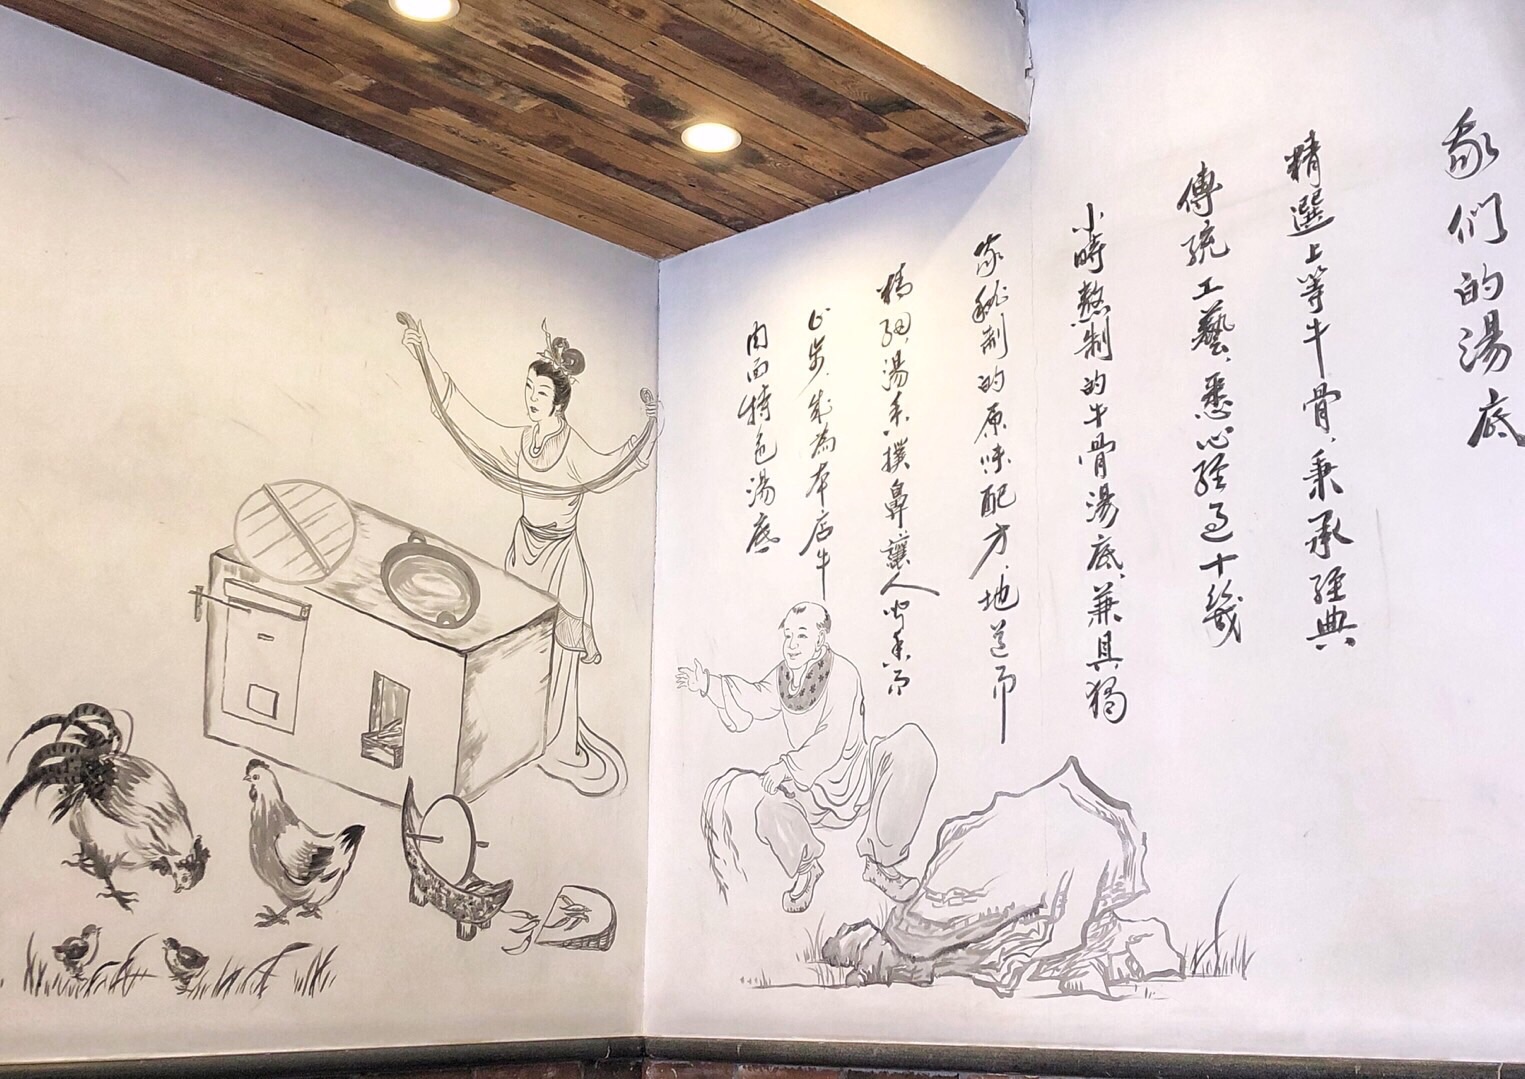 我們的湯底
精選上等牛骨，秉承經典
傳統工藝，悉心經過十幾
小時熬制的牛骨湯底，兼具獨
家秘制的原味配方，地道而
精細，湯香撲鼻，讓人聞香而
止步，成為本店牛
肉面特色湯底